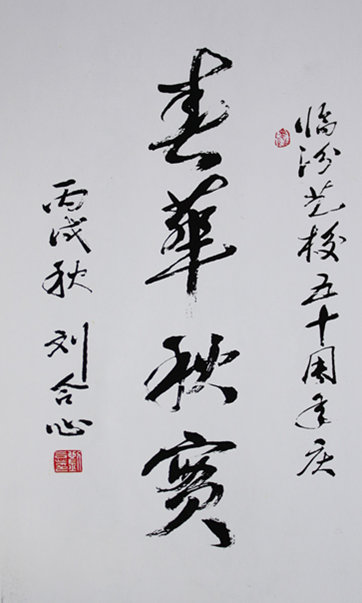 临汾艺校五十周年庆
春華秋實
丙戌秋 刘合心